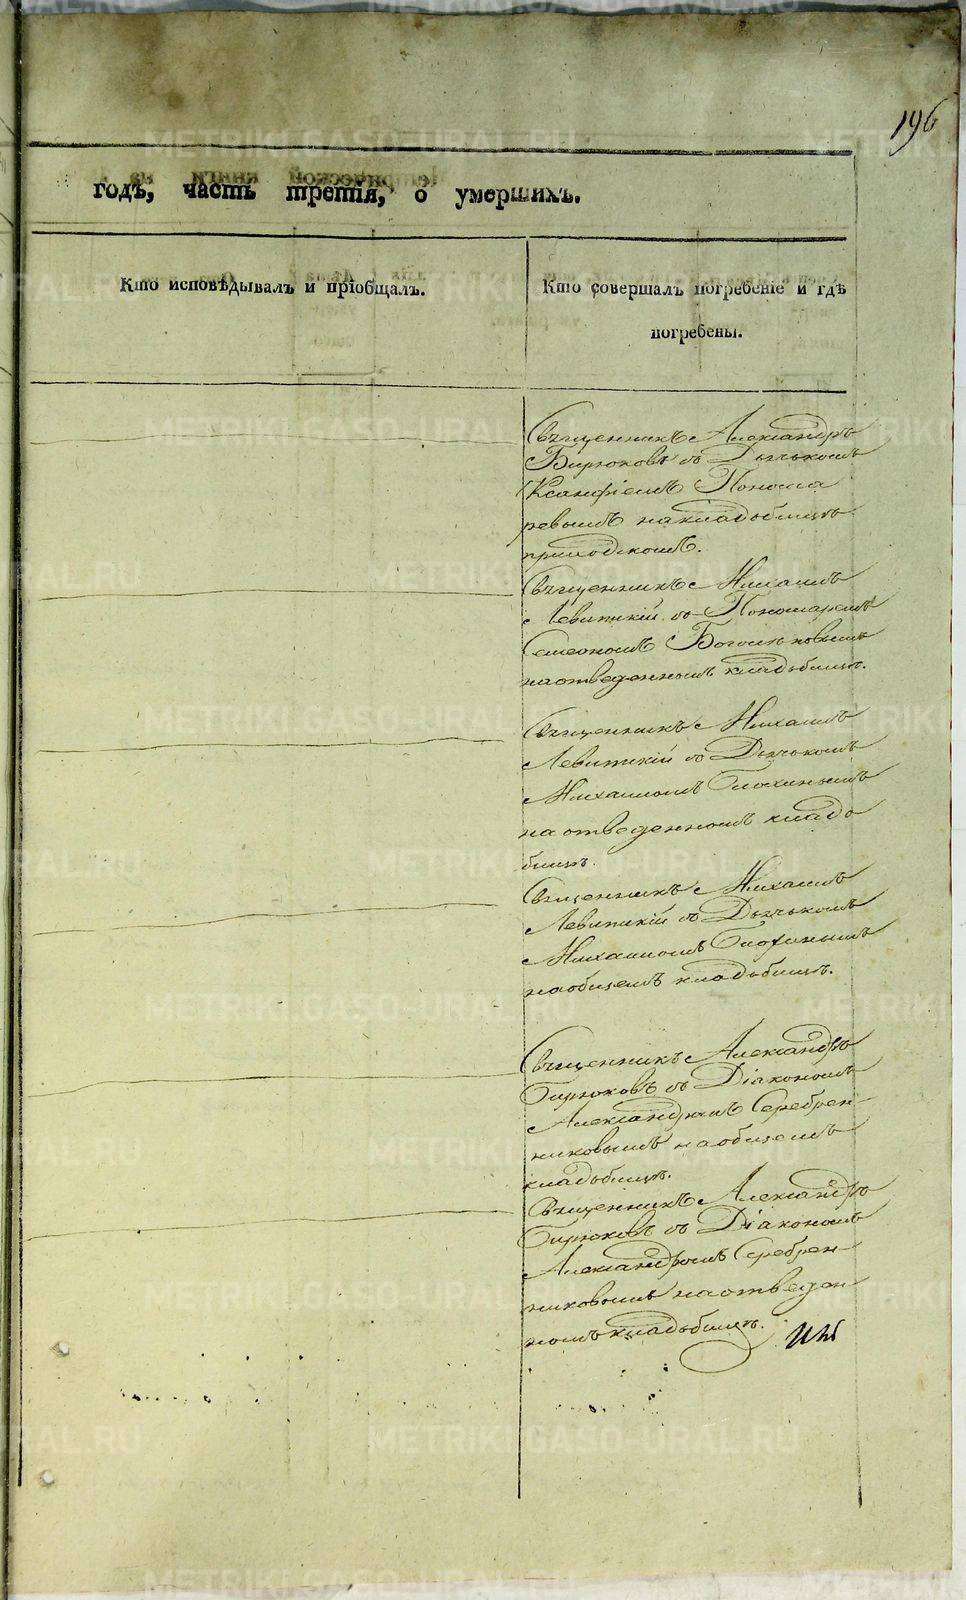 196
годъ, часть третія, о умершихъ.
Кто исповѣдывалъ и пріобщалъ.
Кто совершалъ погребеніе и гдѣ
погребены.
Священникъ Александръ
Бирюковъ съ Дьячькомъ
Ксанфіемъ Понома
ревымъ на кладбищѣ
приходскомъ.
Священникъ Михаилъ
Левитскій съ Пономаремъ
Семеономъ
на отведенномъ кладбищѣ.
Священникъ Михаилъ
Левитскій съ Дьячькомъ
Михаиломъ
на отведенномъ кладб
бищѣ.
Священникъ Михаилъ
Левитскій съ Дьячькомъ
Михаиломъ
на общемъ кладбищѣ.
Священникъ Александръ
Бирюковъ съ Діакономъ
Александромъ Серебрен
никовымъ на общемъ
кладбищѣ.
Священникъ Александръ
Бирюковъ съ Діакономъ
Александромъ Серебрен
никовымъ на отведен
номъ кладбищѣ.
METRIKI.GASO-URAL.RU